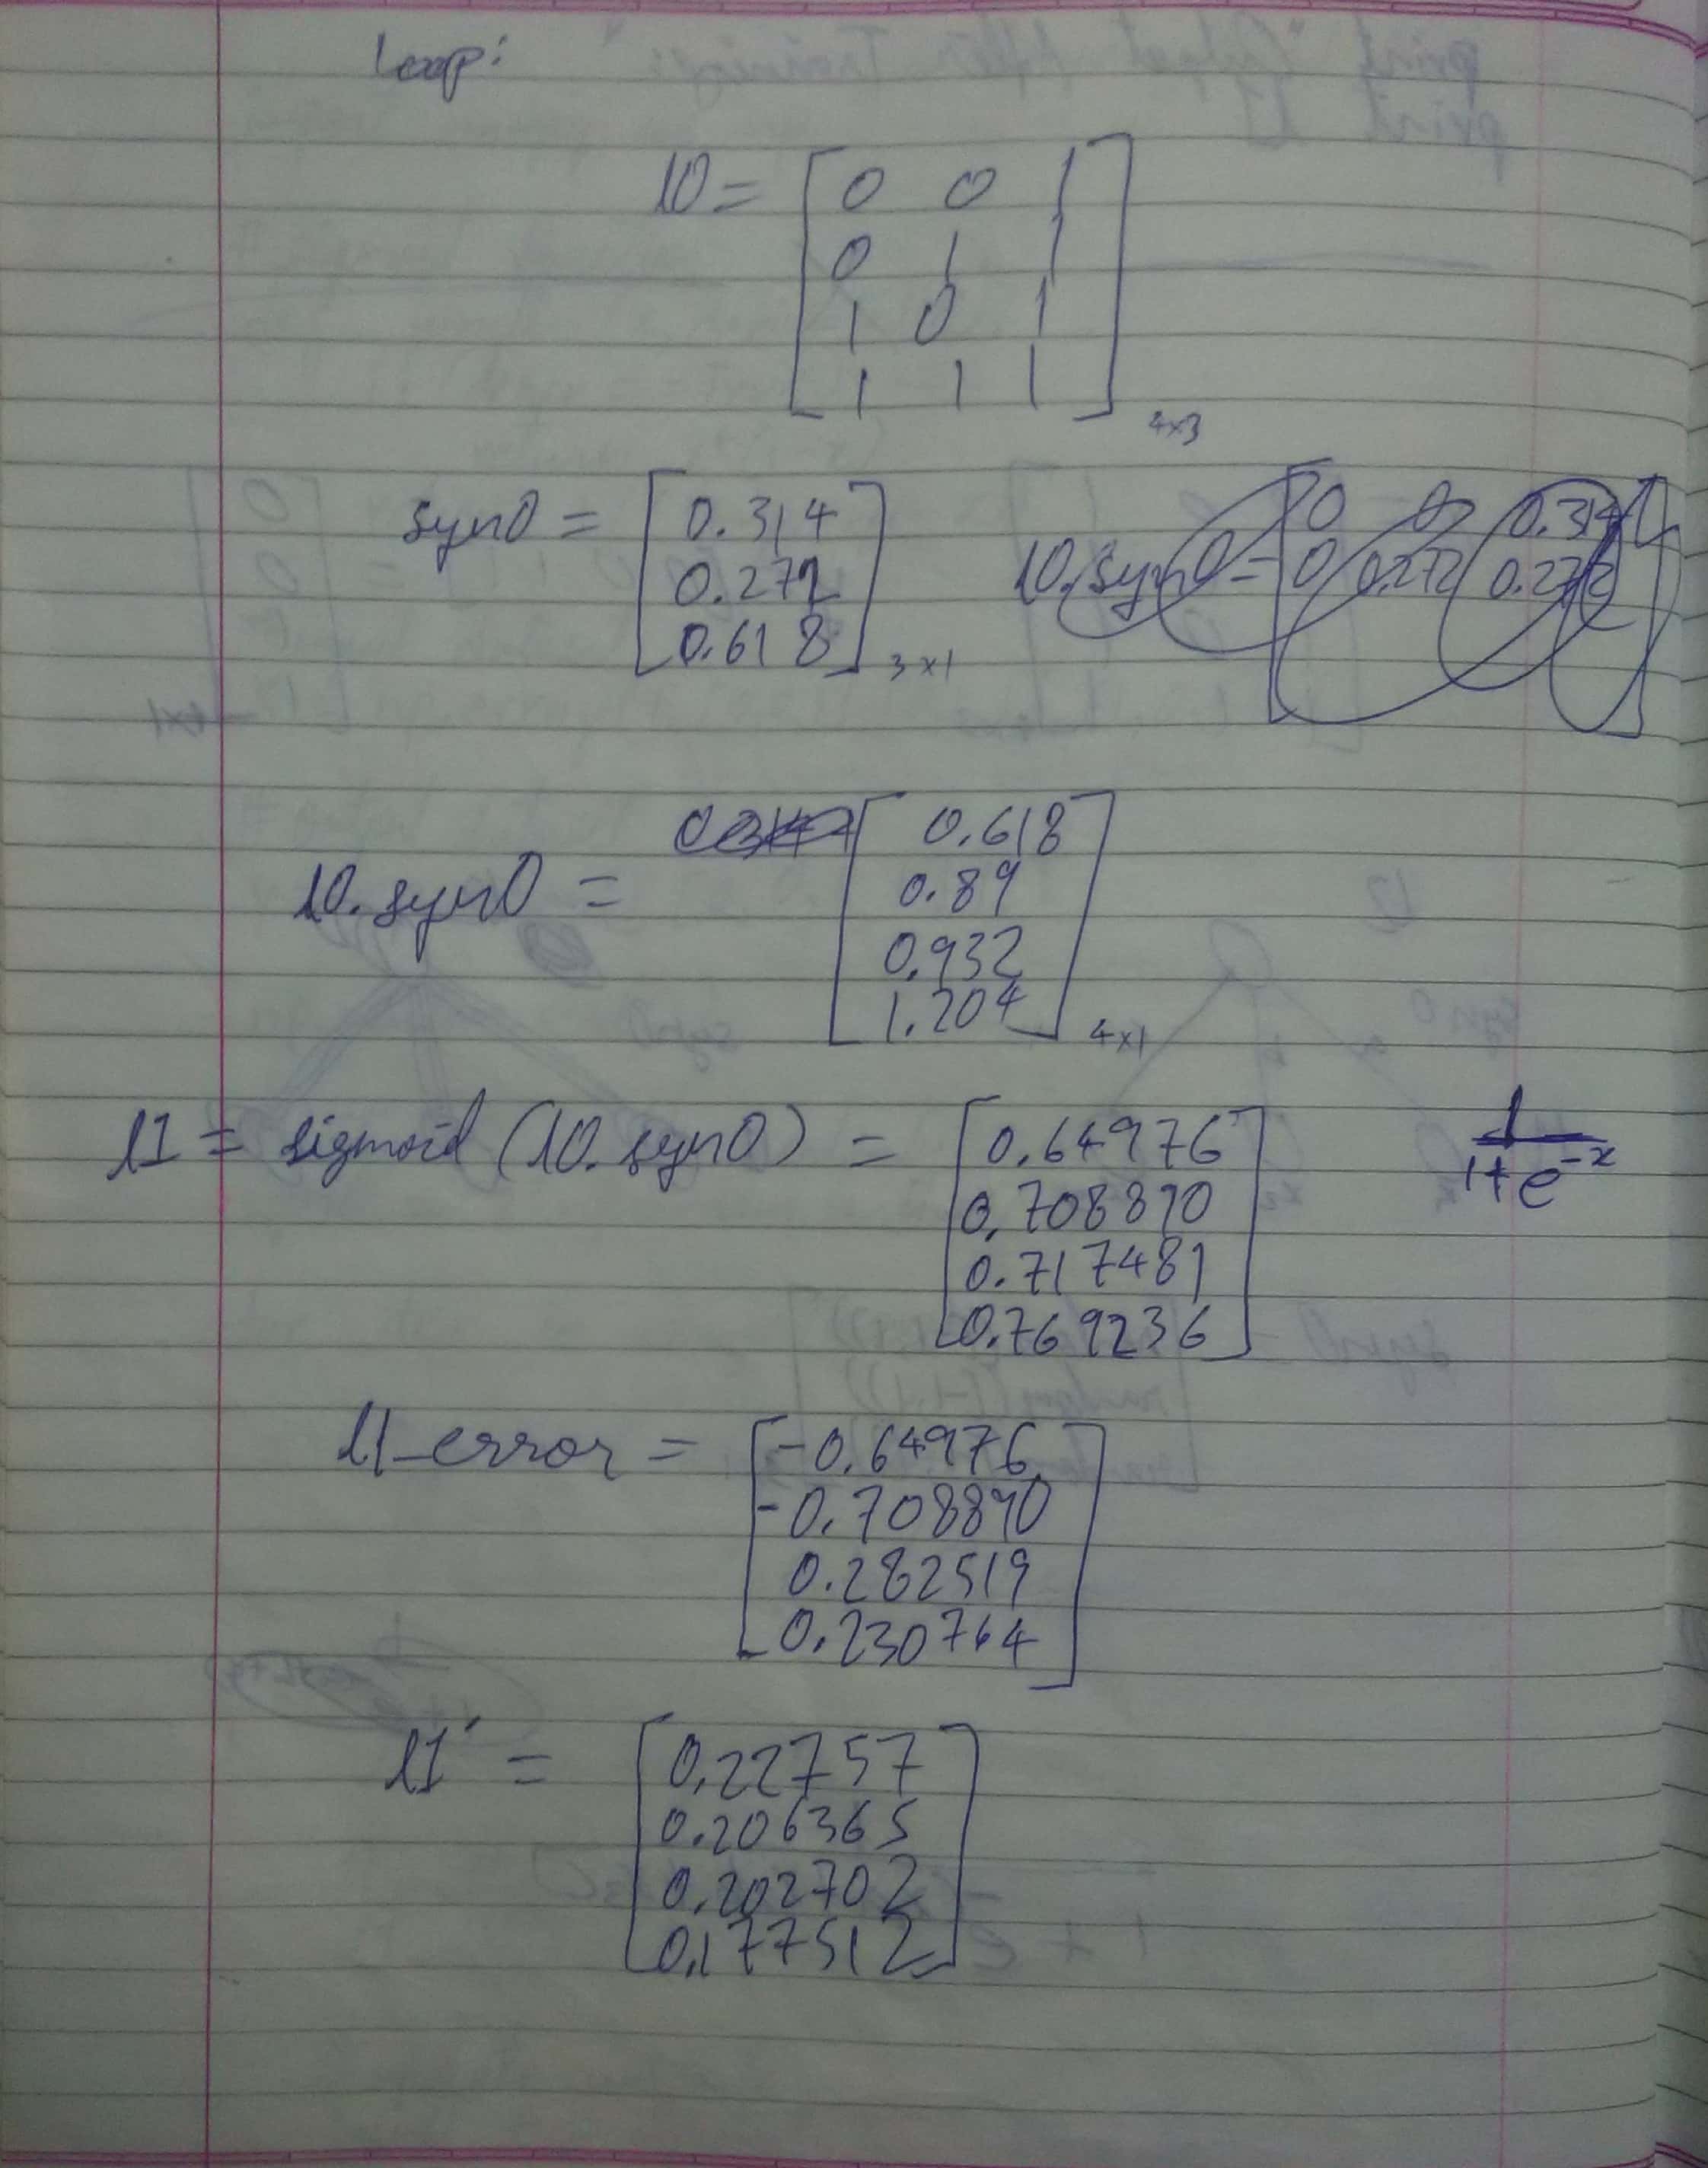 Loop:
l0 = [0 0 1
0 1 1
1 0 1
1 1 1] 4x3
syn0 = [0.314
0.272
0.618] 3x1
l0.syn0 = [0 0 0.314
0 0.272 0.272]
l0.syn0 = [0.618
0.89
0.932
1.204] 4x1
l1 = sigmoid (l0.syn0) = [0.64976
0.708890
0.717481
0.769236]
1
1+e^-x
l1_error = [-0.64976
-0.708890
0.282519
0.230764]
l1' = [0.22757
0.206365
0.202702
0.177512]